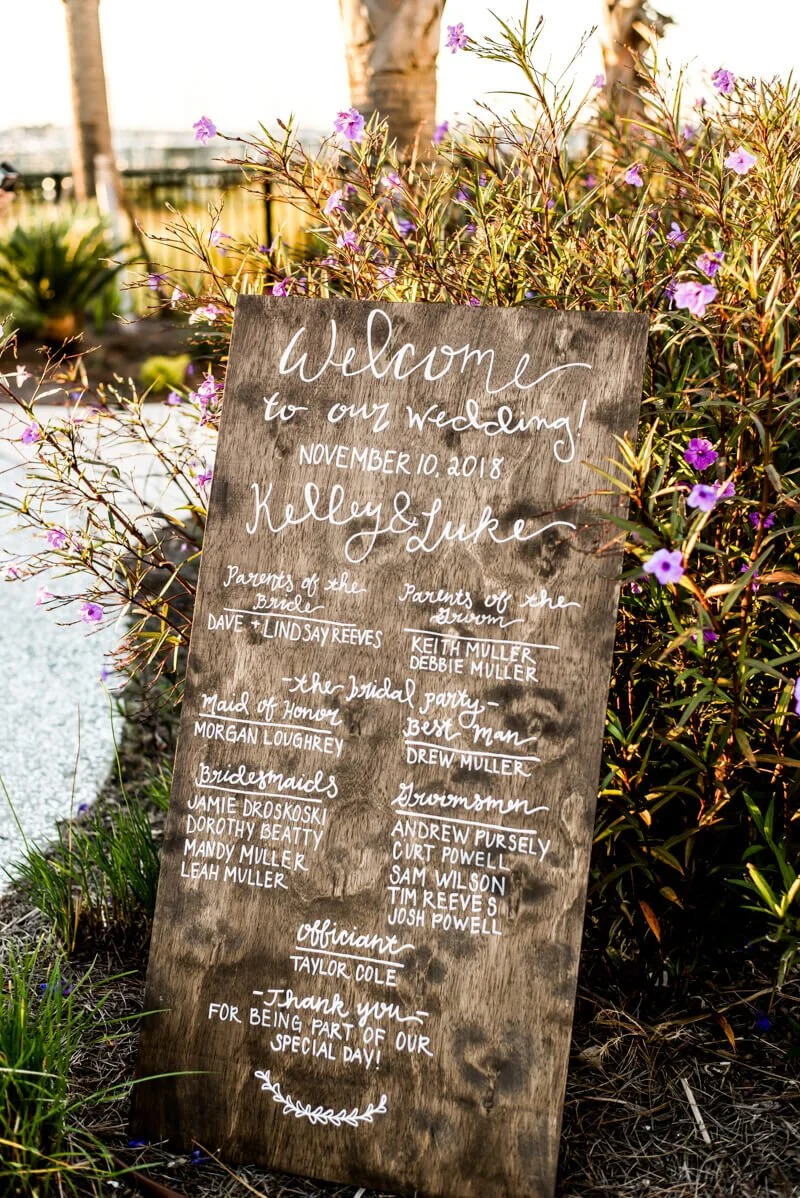 Welcome
to our wedding!
NOVEMBER 10, 2018
Kelley & Luke
Parents of the
Bride
DAVE + LINDSAY REEVES
Parents of the
Groom
KEITH MULLER
DEBBIE MULLER
-the bridal party-
Maid of Honor
MORGAN LOUGHREY
Best Man
DREW MULLER
Bridesmaids
JAMIE DROSKOSKI
DOROTHY BEATTY
MANDY MULLER
LEAH MULLER
Groomsmen
ANDREW PURSELY
CURT POWELL
SAM WILSON
TIM REEVES
JOSH POWELL
Officiant
TAYLOR COLE
-Thank you-
FOR BEING PART OF OUR
SPECIAL DAY!